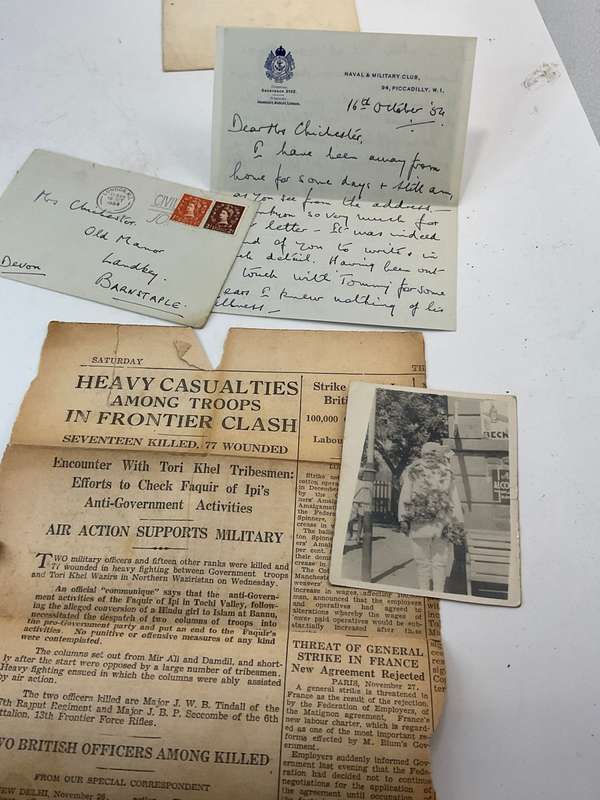 NAVAL & MILITARY CLUB,
94, PICCADILLY, W.1.
16th October '54
Dear Mrs Chichester,
I have been away from
home for some days & still am,
as you see from the address -
so very much for
letter - It was indeed
of you to write & in
detail. Having been out
touch with Tommy for some
I knew nothing of his
illness -
Mrs Chichester.
Old Manor
Landkey
BARNSTAPLE.
Devon
SATURDAY
TH
HEAVY CASUALTIES
AMONG TROOPS
IN FRONTIER CLASH
SEVENTEEN KILLED, 77 WOUNDED
Encounter With Tori Khel Tribesmen:
Efforts to Check Faquir of Ipi's
Anti-Government Activities
AIR ACTION SUPPORTS MILITARY
TWO military officers and fifteen other ranks were killed and
77 wounded in heavy fighting between Government troops
and Tori Khel Wazirs in Northern Waziristan on Wednesday.
An official "communique" says that the anti-Govern-
ment activities of the Faquir of Ipi in Tochi Valley, follow-
ing the alleged conversion of a Hindu girl to Islam at Bannu,
necessitated the despatch of two columns of troops into
the pro-Government party and put an end to the Faquir's
activities. No punitive or offensive measures of any kind
were contemplated.
The columns set out from Mir Ali and Damdil, and short-
ly after the start were opposed by a large number of tribesmen.
Heavy fighting ensued in which the columns were ably assisted
by air action.
The two officers killed are Major J. W. B. Tindall of the
7th Rajput Regiment and Major J. B. P. Seccombe of the 6th
ttalion, 13th Frontier Force Rifles.
WO BRITISH OFFICERS AMONG KILLED
FROM OUR SPECIAL CORRESPONDENT
NEW DELHI, November 26.
Strike
Briti
100,000
Labou
Strike
cotton opera
in Decembe
by the
Amalgamat
the Federa
Spinners,
crease in w
The ballo
ton Spinn
ers' Amal
per cent.
their dema
crease in
The
Manchester
weavers'
increase in wages, affecting
man, announced that the employers
and operatives had agreed
alterations whereby the wages of
over paid operatives would be sub-
stantially increased after these
THREAT OF GENERAL
STRIKE IN FRANCE
New Agreement Rejected
PARIS, November 27.
A general strike is threatened in
France as the result of the rejection,
by the Federation of Employers, of
the Matignon agreement, France's
new labour charter, which is regard-
ed as one of the most important re-
forms effected by M. Blum's Gov-
ernment.
Employers suddenly informed Gov-
ernment last evening that the Fede-
ration had decided not to continue
negotiations for the application of
the agreement until occupation
BECK
ALCO